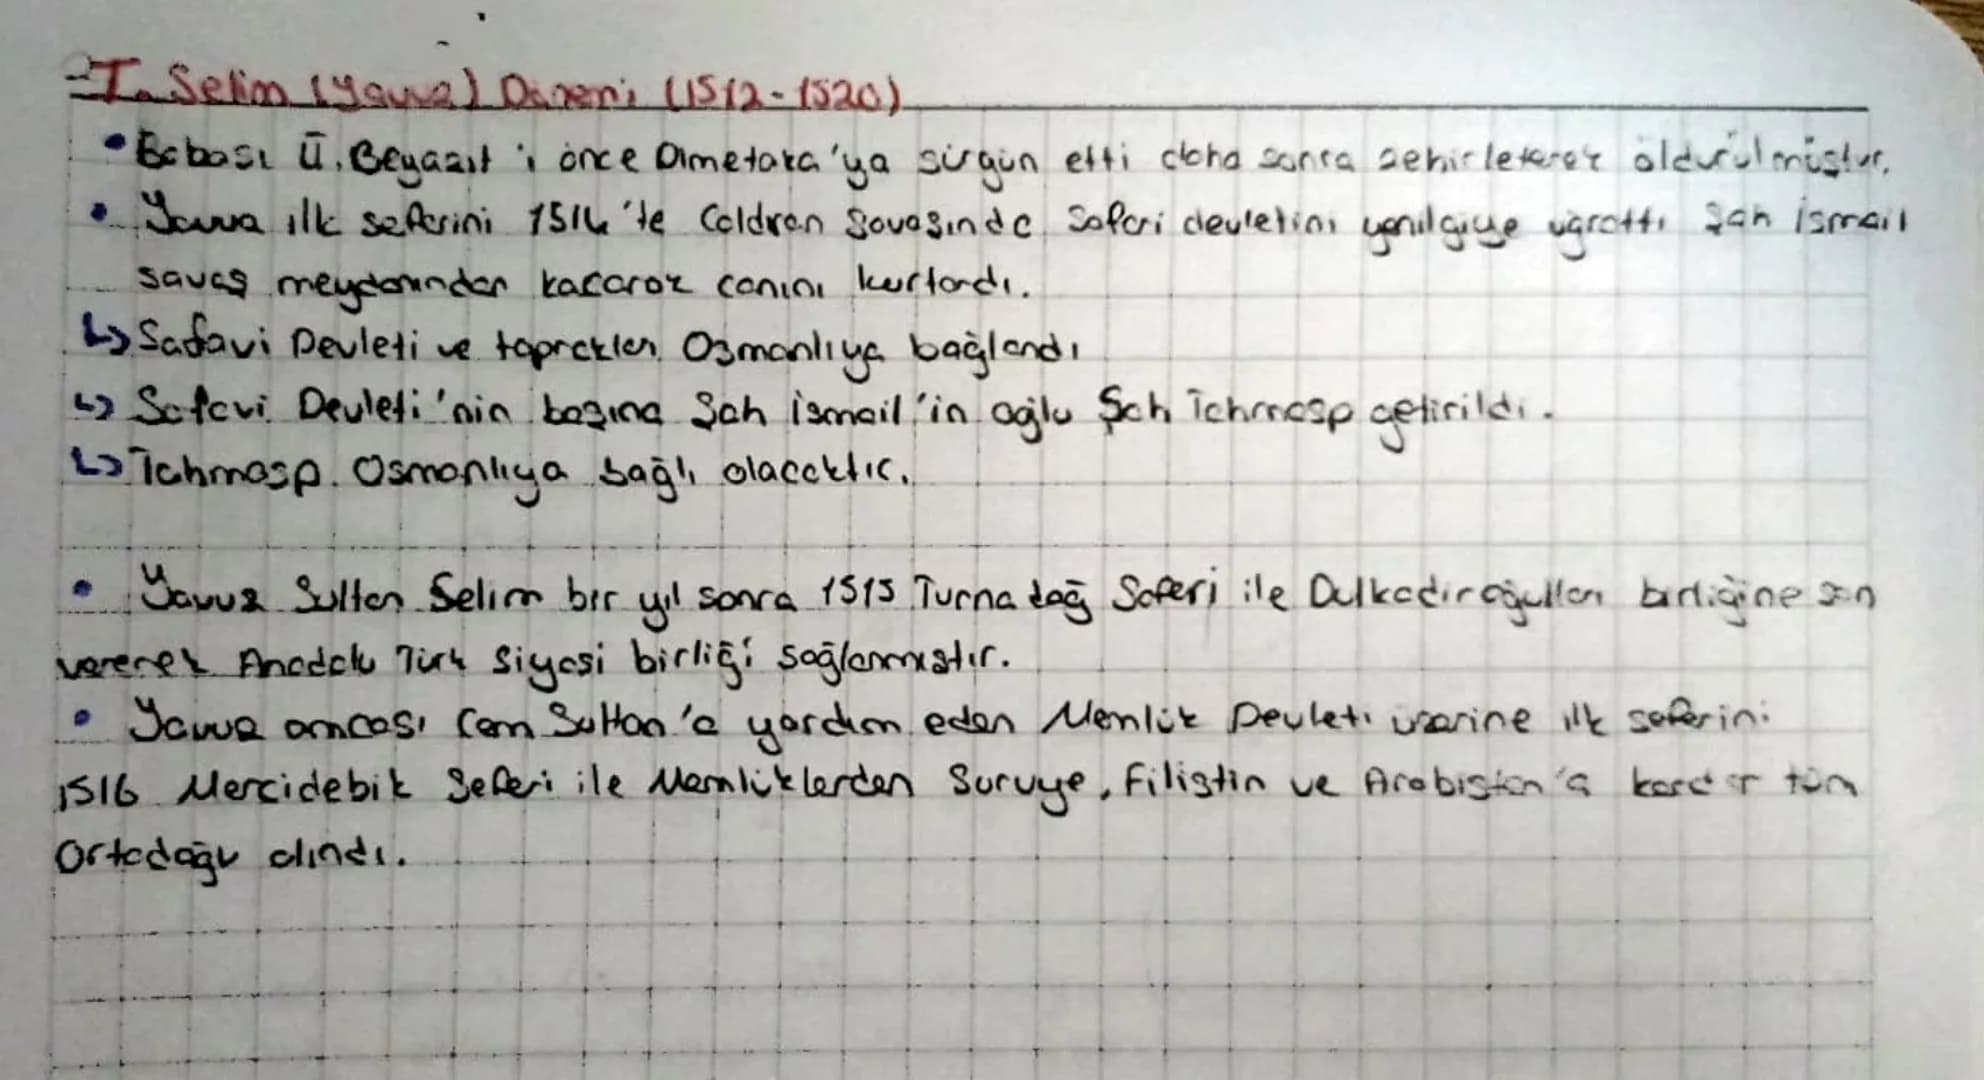 I. Selim (Yavuz) Dönemi (1512-1520)
• Babası II. Beyazıt'ı önce Dimetoka'ya sürgün etti daha sonra zehirleterek öldürülmüştür.
• Yavuz ilk seferini 1514'te Çaldıran Savaşında Safevi devletini yenilgiye uğrattı Şah İsmail
savaş meydanından kaçarak canını kurtardı.
↳ Safavi Devleti ve topraklar Osmanlıya bağlandı
↳ Safevi Devleti'nin başına Şah İsmail'in oğlu Şah Tahmasp getirildi.
↳ Tahmasp Osmanlıya bağlı olacaktır.
• Yavuz Sultan Selim bir yıl sonra 1515 Turna dağ Seferi ile Dulkadiroğulları birliğine son
vererek Anadolu Türk Siyasi birliği sağlanmıştır.
• Yavuz amcası Cem Sultan'a yardım eden Memlük Devleti üzerine ilk seferini
1516 Mercidebik Seferi ile Memlüklerden Suruye, Filistin ve Arabistan'a kadar tüm
Ortadoğu alındı.